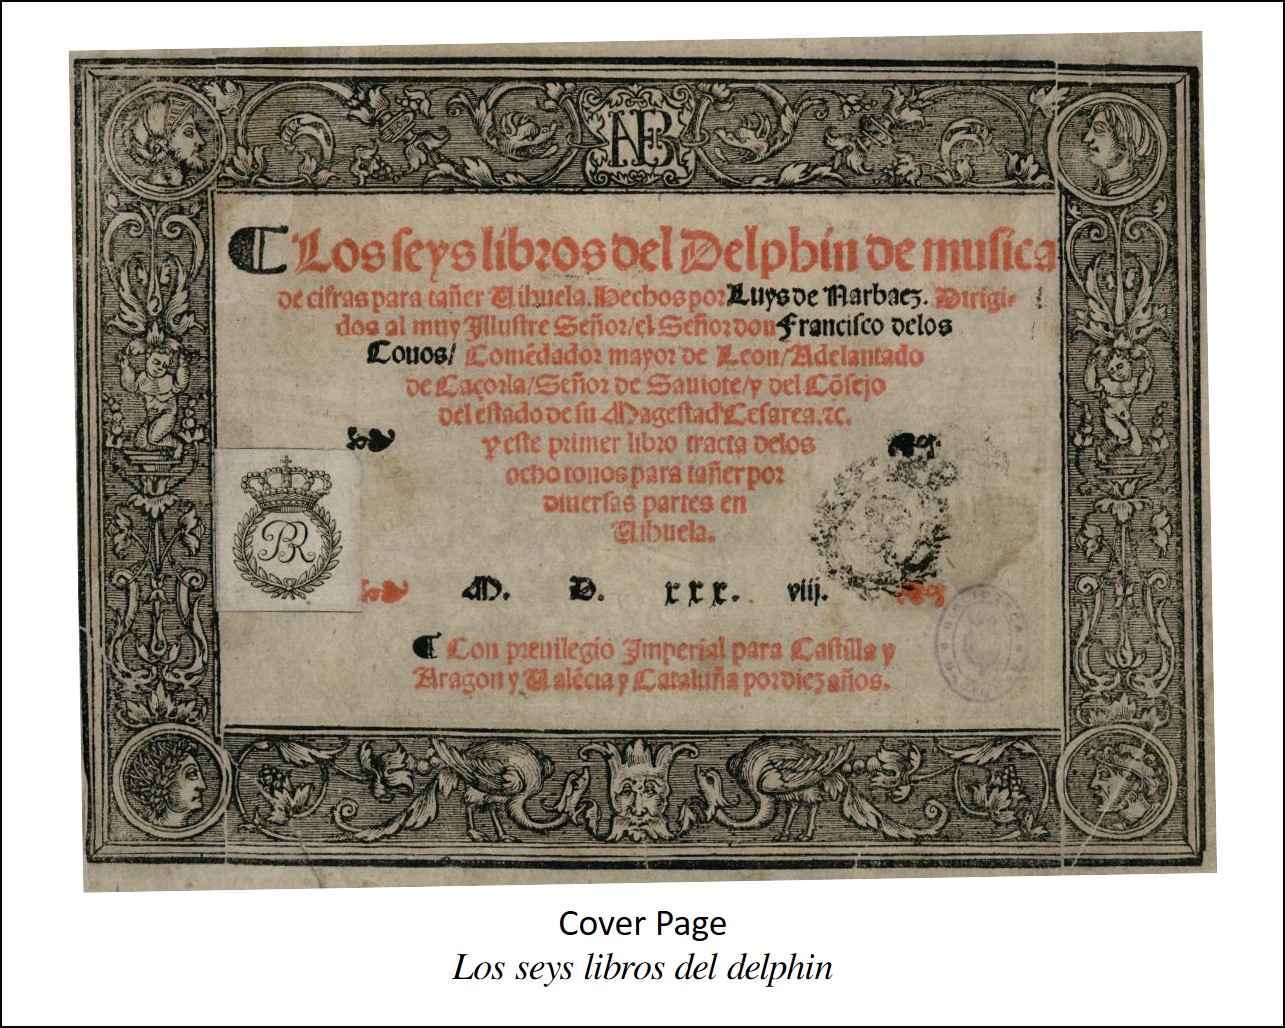 AFB
Los seys libros del Delphin de musica
de cifras para tañer Uihuela. Hechos por Luys de Narbaez. Dirigi-
dos al muy Jllustre Señor/el Señor don Francisco delos
Couos/ Comẽdador mayor de Leon/Adelantado
de Caçorla/Señor de Sauiote/y del Cõsejo
del estado de su Magestad Cesarea.⁊c.
y este primer libro tracta delos
ocho tonos para tañer por
diuersas partes en
Uihuela.
BR
M. D. xxx. viij.
Con preuilegio Jmperial para Castilla y
Aragon y Ualẽcia y Cataluña por diez años.
Cover Page
Los seys libros del delphin